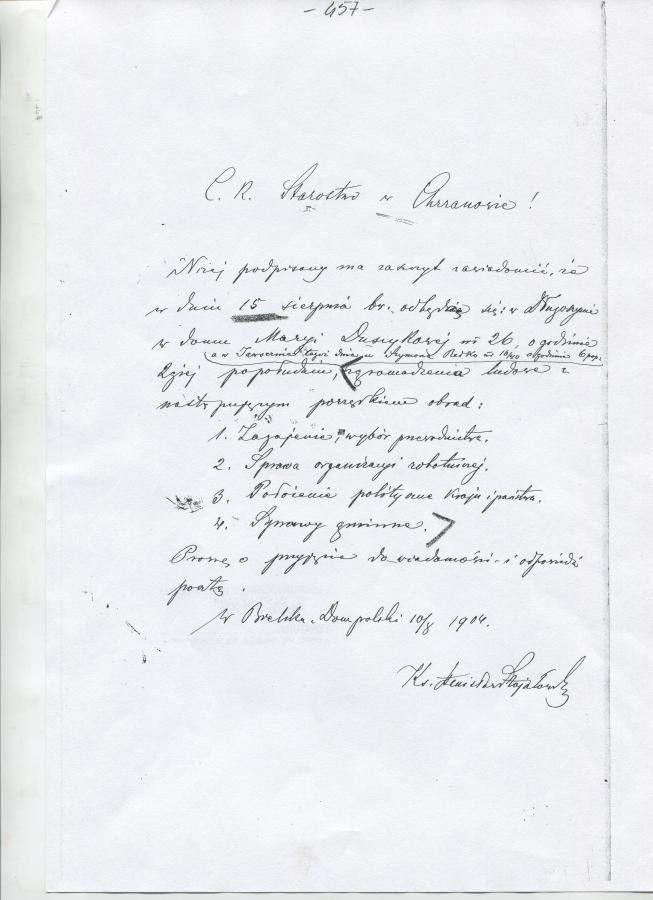 - 457 -
C. K. Starostwo w Chrzanowie!
Niżej podpisany ma zaszczyt zawiadomić, że
w dniu 15 sierpnia br. odbędzie się: w Długoszynie
w domu Maryi Dusikowej nr 26, o godzinie
a w Jaworznie tegoż dnia u Szymona o godzinie 6 pop.
2giej popołudniu, zgromadzenia ludowe z
następującym porządkiem obrad:
1. Zagajenie, wybór przewodnictwa.
2. Sprawa organizacyi robotniczej.
3. Położenie polityczne kraju i państwa.
4. Sprawy gminne.
Proszę o przyjęcie do wiadomości i odpowiedź
pocztą.
W Dom polski 10/8 1904.
Ks. Stanisław Stojałowski